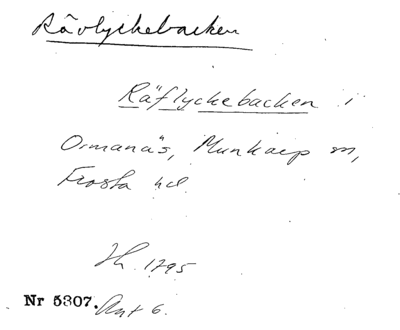 Rävlyckebacken
Räflyckebacken i
Ormanäs, Munkarp sn,
Frosta hd.
Jh. 1795
Nr 5307. Akt 6.